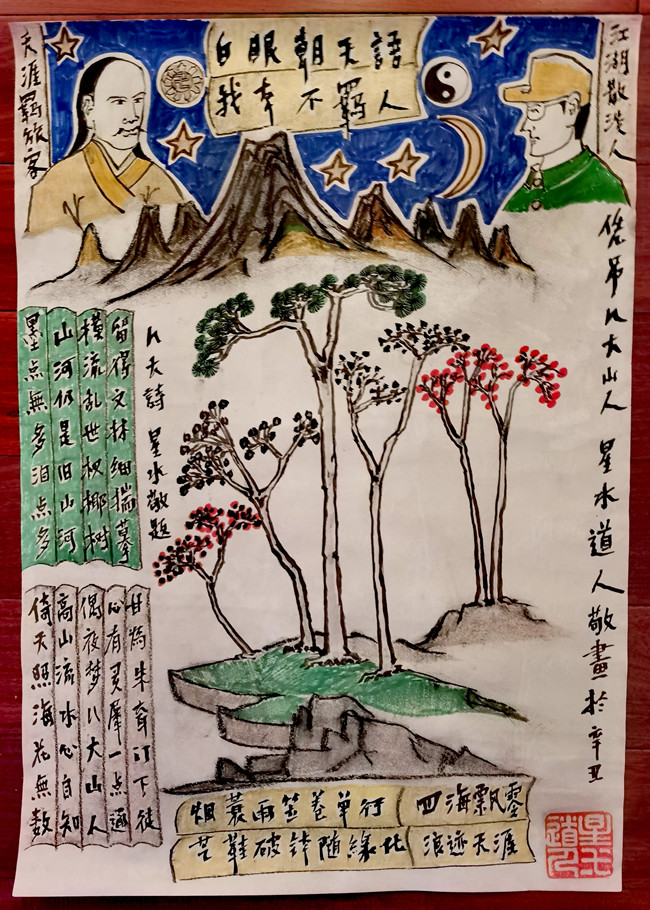 白眼朝天語
我本不羈人
天涯羁旅客
江湖散淡人
吊八大山人 星水道人敬畫於辛丑
留得文林细揣摹
横流乱世杈椰树
山河仍是旧山河
墨点無多泪点多
八大詩 星水敬题
甘為朱耷门下徒
心有灵犀一点通
偶夜梦八大山人
高山流水心自知
倚天照海花無数
烟蓑雨笠卷單行
芒鞋破钵随缘化
四海飘零
浪迹天涯
星水道人